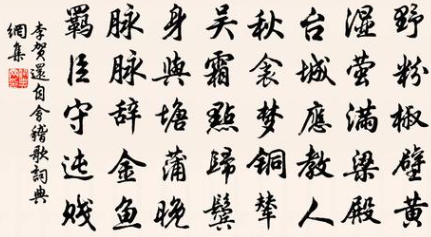 野粉椒壁黄
湿萤满梁殿
台城應教人
秋衾梦铜辇
吴霜點歸鬓
身與塘蒲晚
脉脉辞金魚
羈臣守迍贱
李贺還自會稽歌詞典
網集